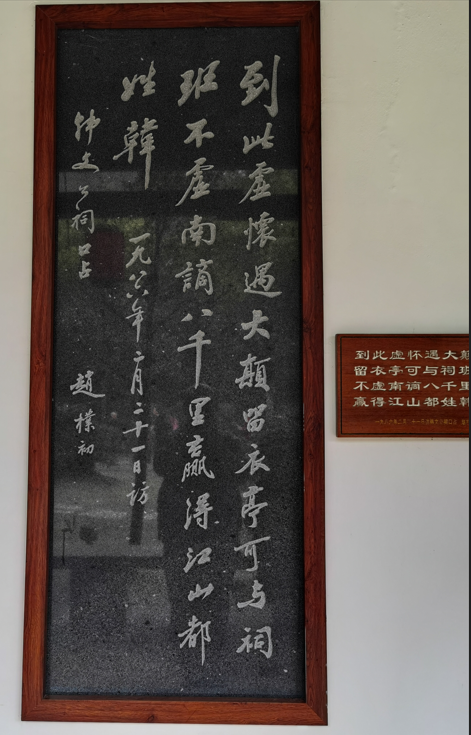 到此虚懷遇大顛留衣亭可与祠
班不虚南謫八千里贏得江山都
姓韓
一九八六年二月二十一日訪
韩文公祠口占
趙樸初
到此虚怀遇大颠
留衣亭可与祠班
不虚南谪八千里
赢得江山都姓韩